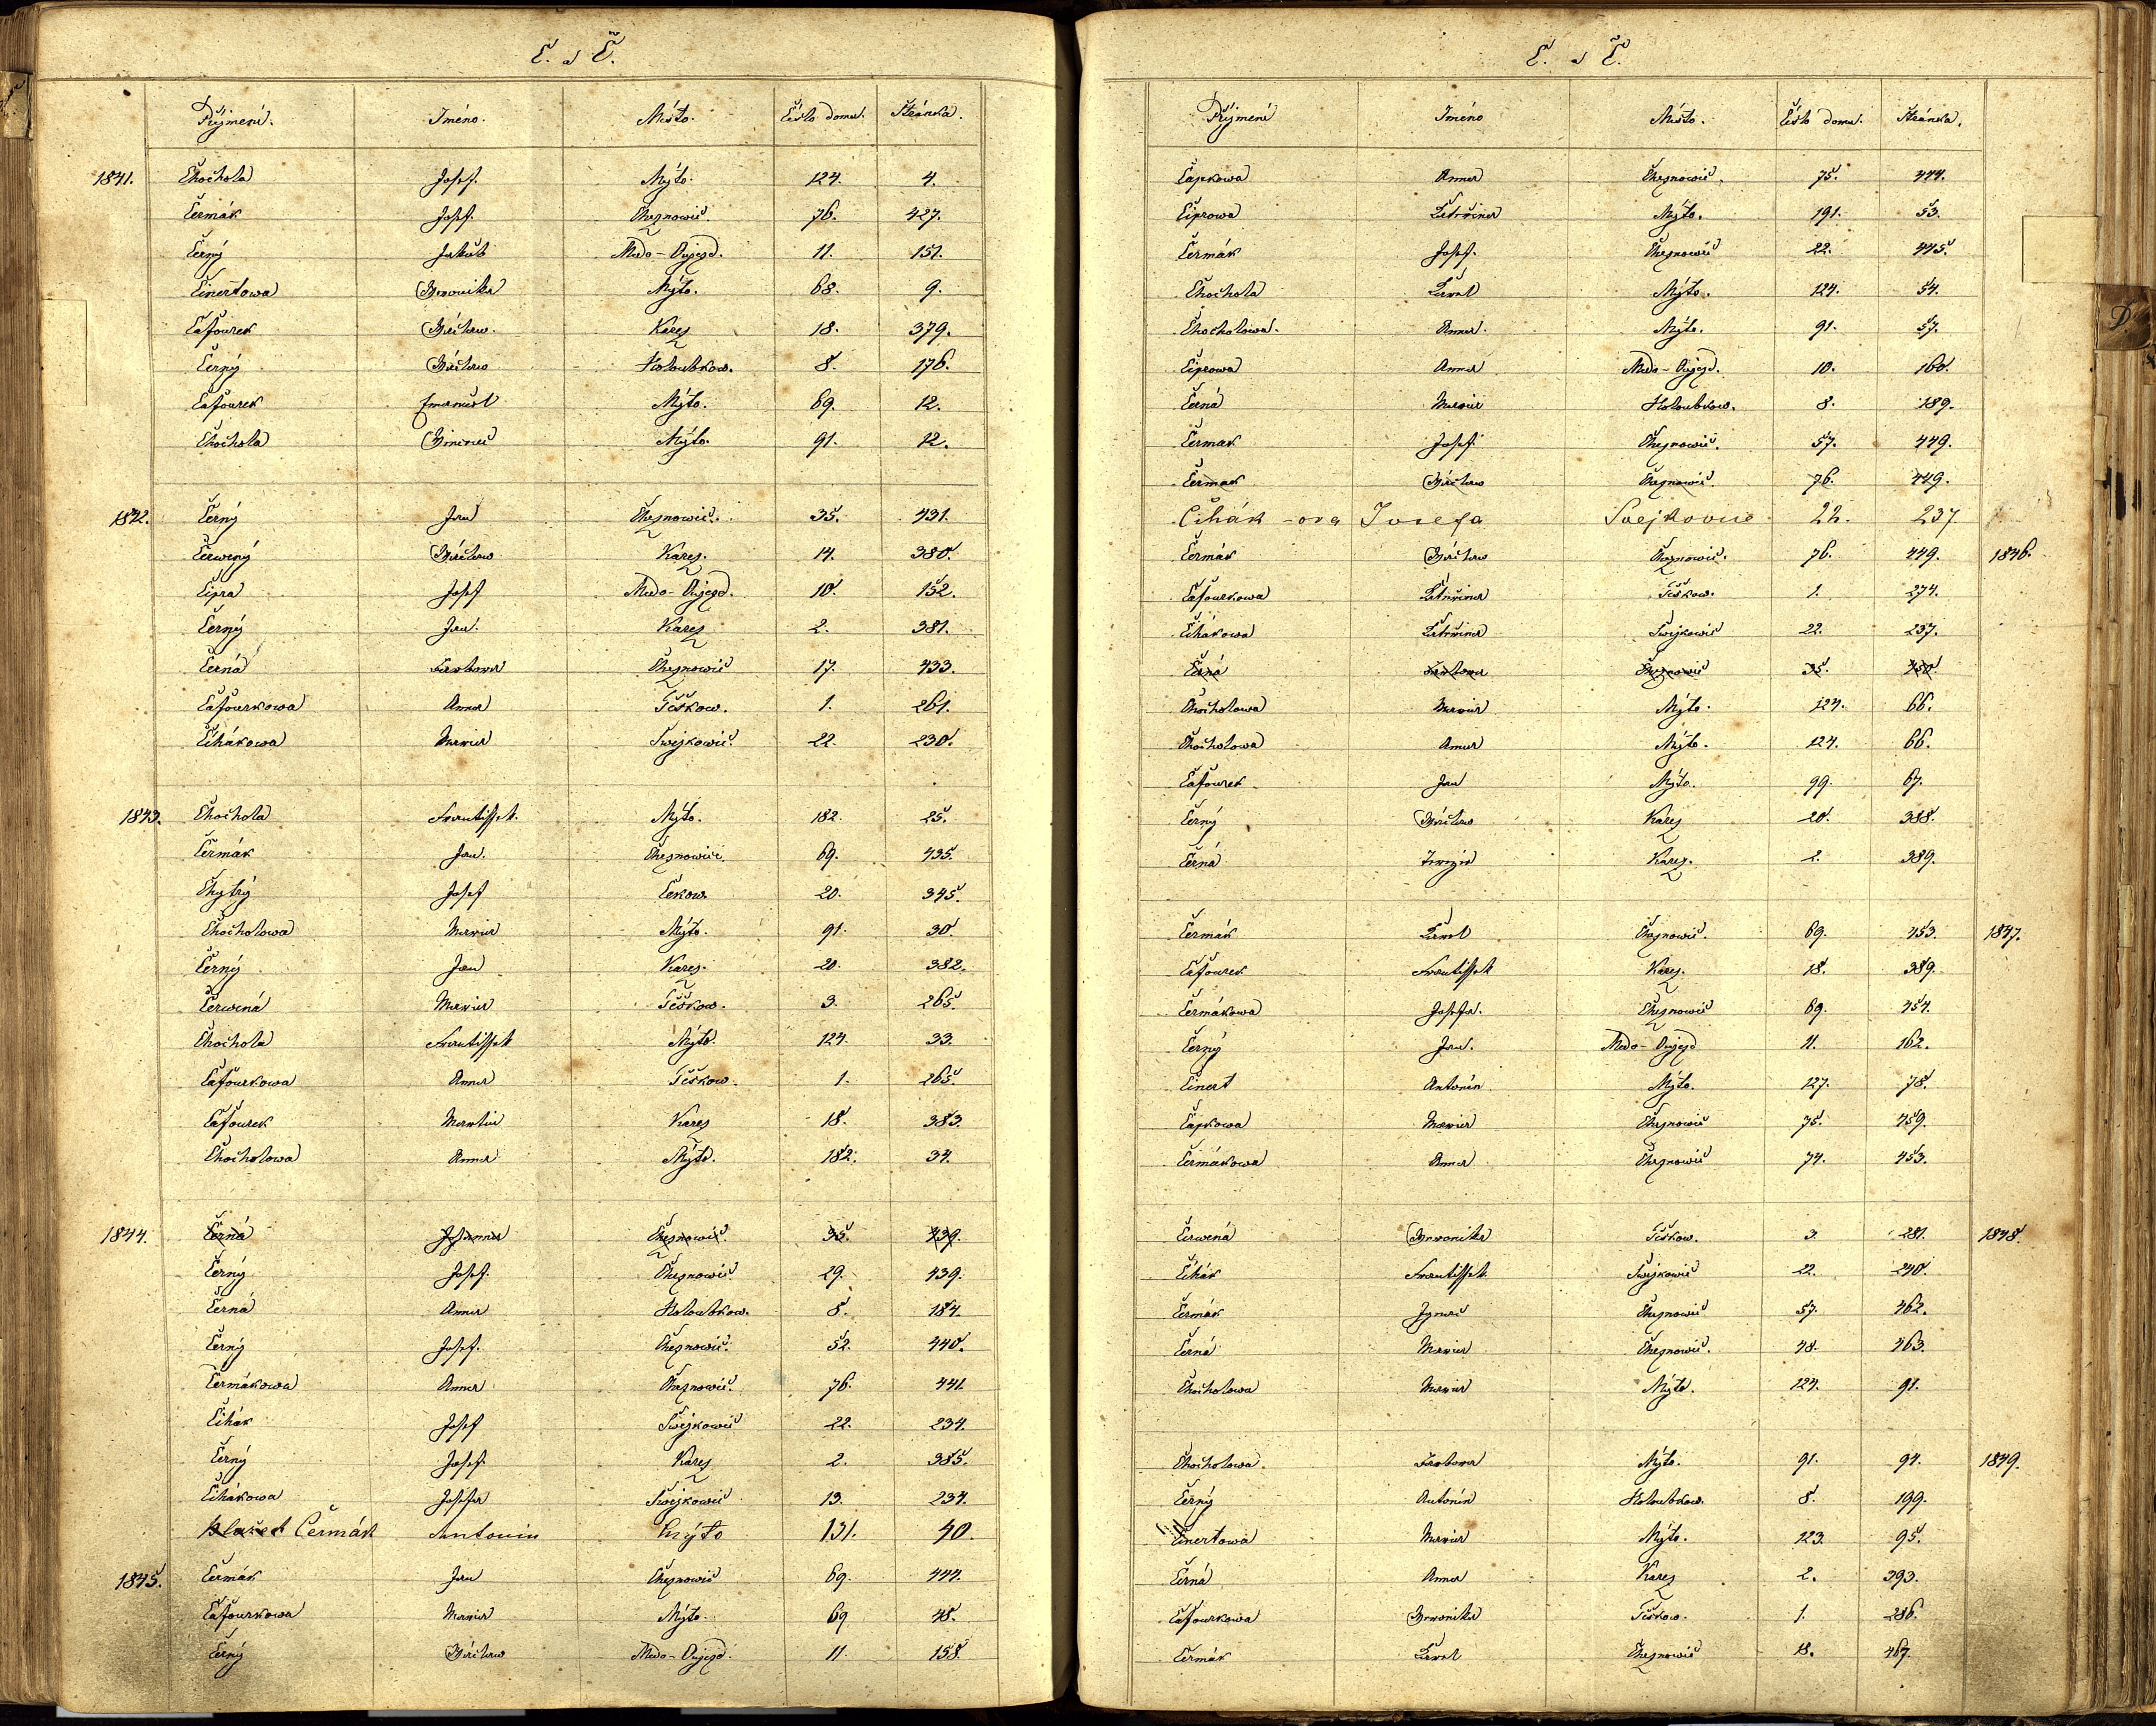 C. a Č.
Příjmení. Iméno. Místo. Číslo domu. Stránka.
1841. Chochola Josef. Mýto. 124. 4.
Čermák Josef. Cheznowic. 76. 427.
Černý Jakub Medo-Oujezd. 11. 151.
Činertowa Weronika Mýto. 68. 9.
Čafourek Wáclaw. Karez 18. 379.
Černý Wáclaw Holoubkow. 8. 176.
Čafourek Emanuel Mýto. 69. 12.
Chochola Wincenc Mýto. 91. 12.
1842. Černý Jan Cheznowic. 35. 431.
Čerwený Wáclaw Karez. 14. 380.
Čipra Josef Medo-Oujezd. 10. 152.
Černý Jan. Karez 2. 381.
Černá Barbora Cheznowic 17. 433.
Čafourkowa Anna Těškow. 1. 261.
Čihákowa Maria Swejkowic. 22. 230.
1843. Chochola Frantissek. Mýto. 182. 25.
Čermák Jan. Cheznowic. 69. 435.
Chytrý Josef Čekow 20. 345.
Chocholowa Maria Mýto. 91. 30.
Černý Jan Karez. 20. 382.
Čerwená Maria Těškow. 3. 265.
Chochola Frantissek Mýto. 124. 33.
Čafourkowa Anna Těškow. 1. 265.
Čafourek Martin Karez 18. 383.
Chocholowa Anna Mýto. 182. 34.
1844. Černá Johanna Cheznowic. 35. 439.
Černý Josef. Cheznowic. 29. 439.
Černá Anna Holoubkow. 8. 184.
Černý Josef. Cheznowic. 52. 440.
Čermákowa Anna Cheznowic. 76. 441.
Čihák Josef Swejkowic 22. 234.
Černý Josef Karez 2. 385.
Čihákowa Josefa Swejkowic 13. 234.
Čermák Antonin Mýto 131. 40.
1845. Čermák Jan Cheznowic 69. 444.
Čafourkowa Maria Mýto. 69 48.
Černý Wáclaw Medo-Oujezd. 11. 158.
C. a Č.
Příjmení Iméno Místo. Číslo domu. Stránka.
Čapkowa Anna Cheznowic. 75. 444.
Čiprowa Kateřina Mýto. 191. 53.
Čermák Josef. Cheznowic 22. 445.
Chochola Karel Mýto. 124. 54.
Chocholowa. Anna. Mýto. 91. 57.
Čiprowa Anna Medo-Oujezd. 10. 160.
Černá Maria Holoubkow. 8. 189.
Čermak Josef Cheznowic. 57. 449.
Čermak Wáclaw Cheznowic. 76. 449.
Čihák-ova Josefa Svejkovic 22. 237
Čermák Wáclaw Cheznowic. 76. 449. 1846.
Čafourkowa Kateřina Těškow. 1. 274.
Čihákowa Kateřina Swejkowic 22. 237.
Černá Barbora Cheznowic 35. 450.
Chocholowa Maria Mýto. 124. 66.
Chocholowa Anna Mýto. 124. 66.
Čafourek Jan Mýto. 99. 67.
Černý Wáclaw Karez 20. 388.
Černá Karez. 2. 389.
Čermák Karel Cheznowic. 69. 453. 1847.
Čafourek Frantissek Karez. 18. 389.
Čermákowa Josefa. Cheznowic 69. 454.
Černý Jan. Medo-Oujezd 11. 162.
Činert Antonín Mýto. 127. 78.
Čapkowa Maria Cheznowic 75. 459.
Čermákowa Anna Cheznowic 74. 453.
Čerwená Weronika Těškow. 3. 281. 1848.
Čihák Frantissek Swejkowic 22. 240.
Čermák Ignac Cheznowic 57. 462.
Černá Maria Cheznowic. 48. 463.
Chocholowa Maria Mýto. 124. 91.
Chocholowa. Barbora Mýto. 91. 94. 1849.
Černý Antonín Holoubkow. 8. 199.
Činertowa Maria Mýto. 123. 95.
Černá Anna Karez 2. 393.
Čafourkowa Weronika Těškow. 1. 286.
Čermák Karel Cheznowic 18. 467.
D